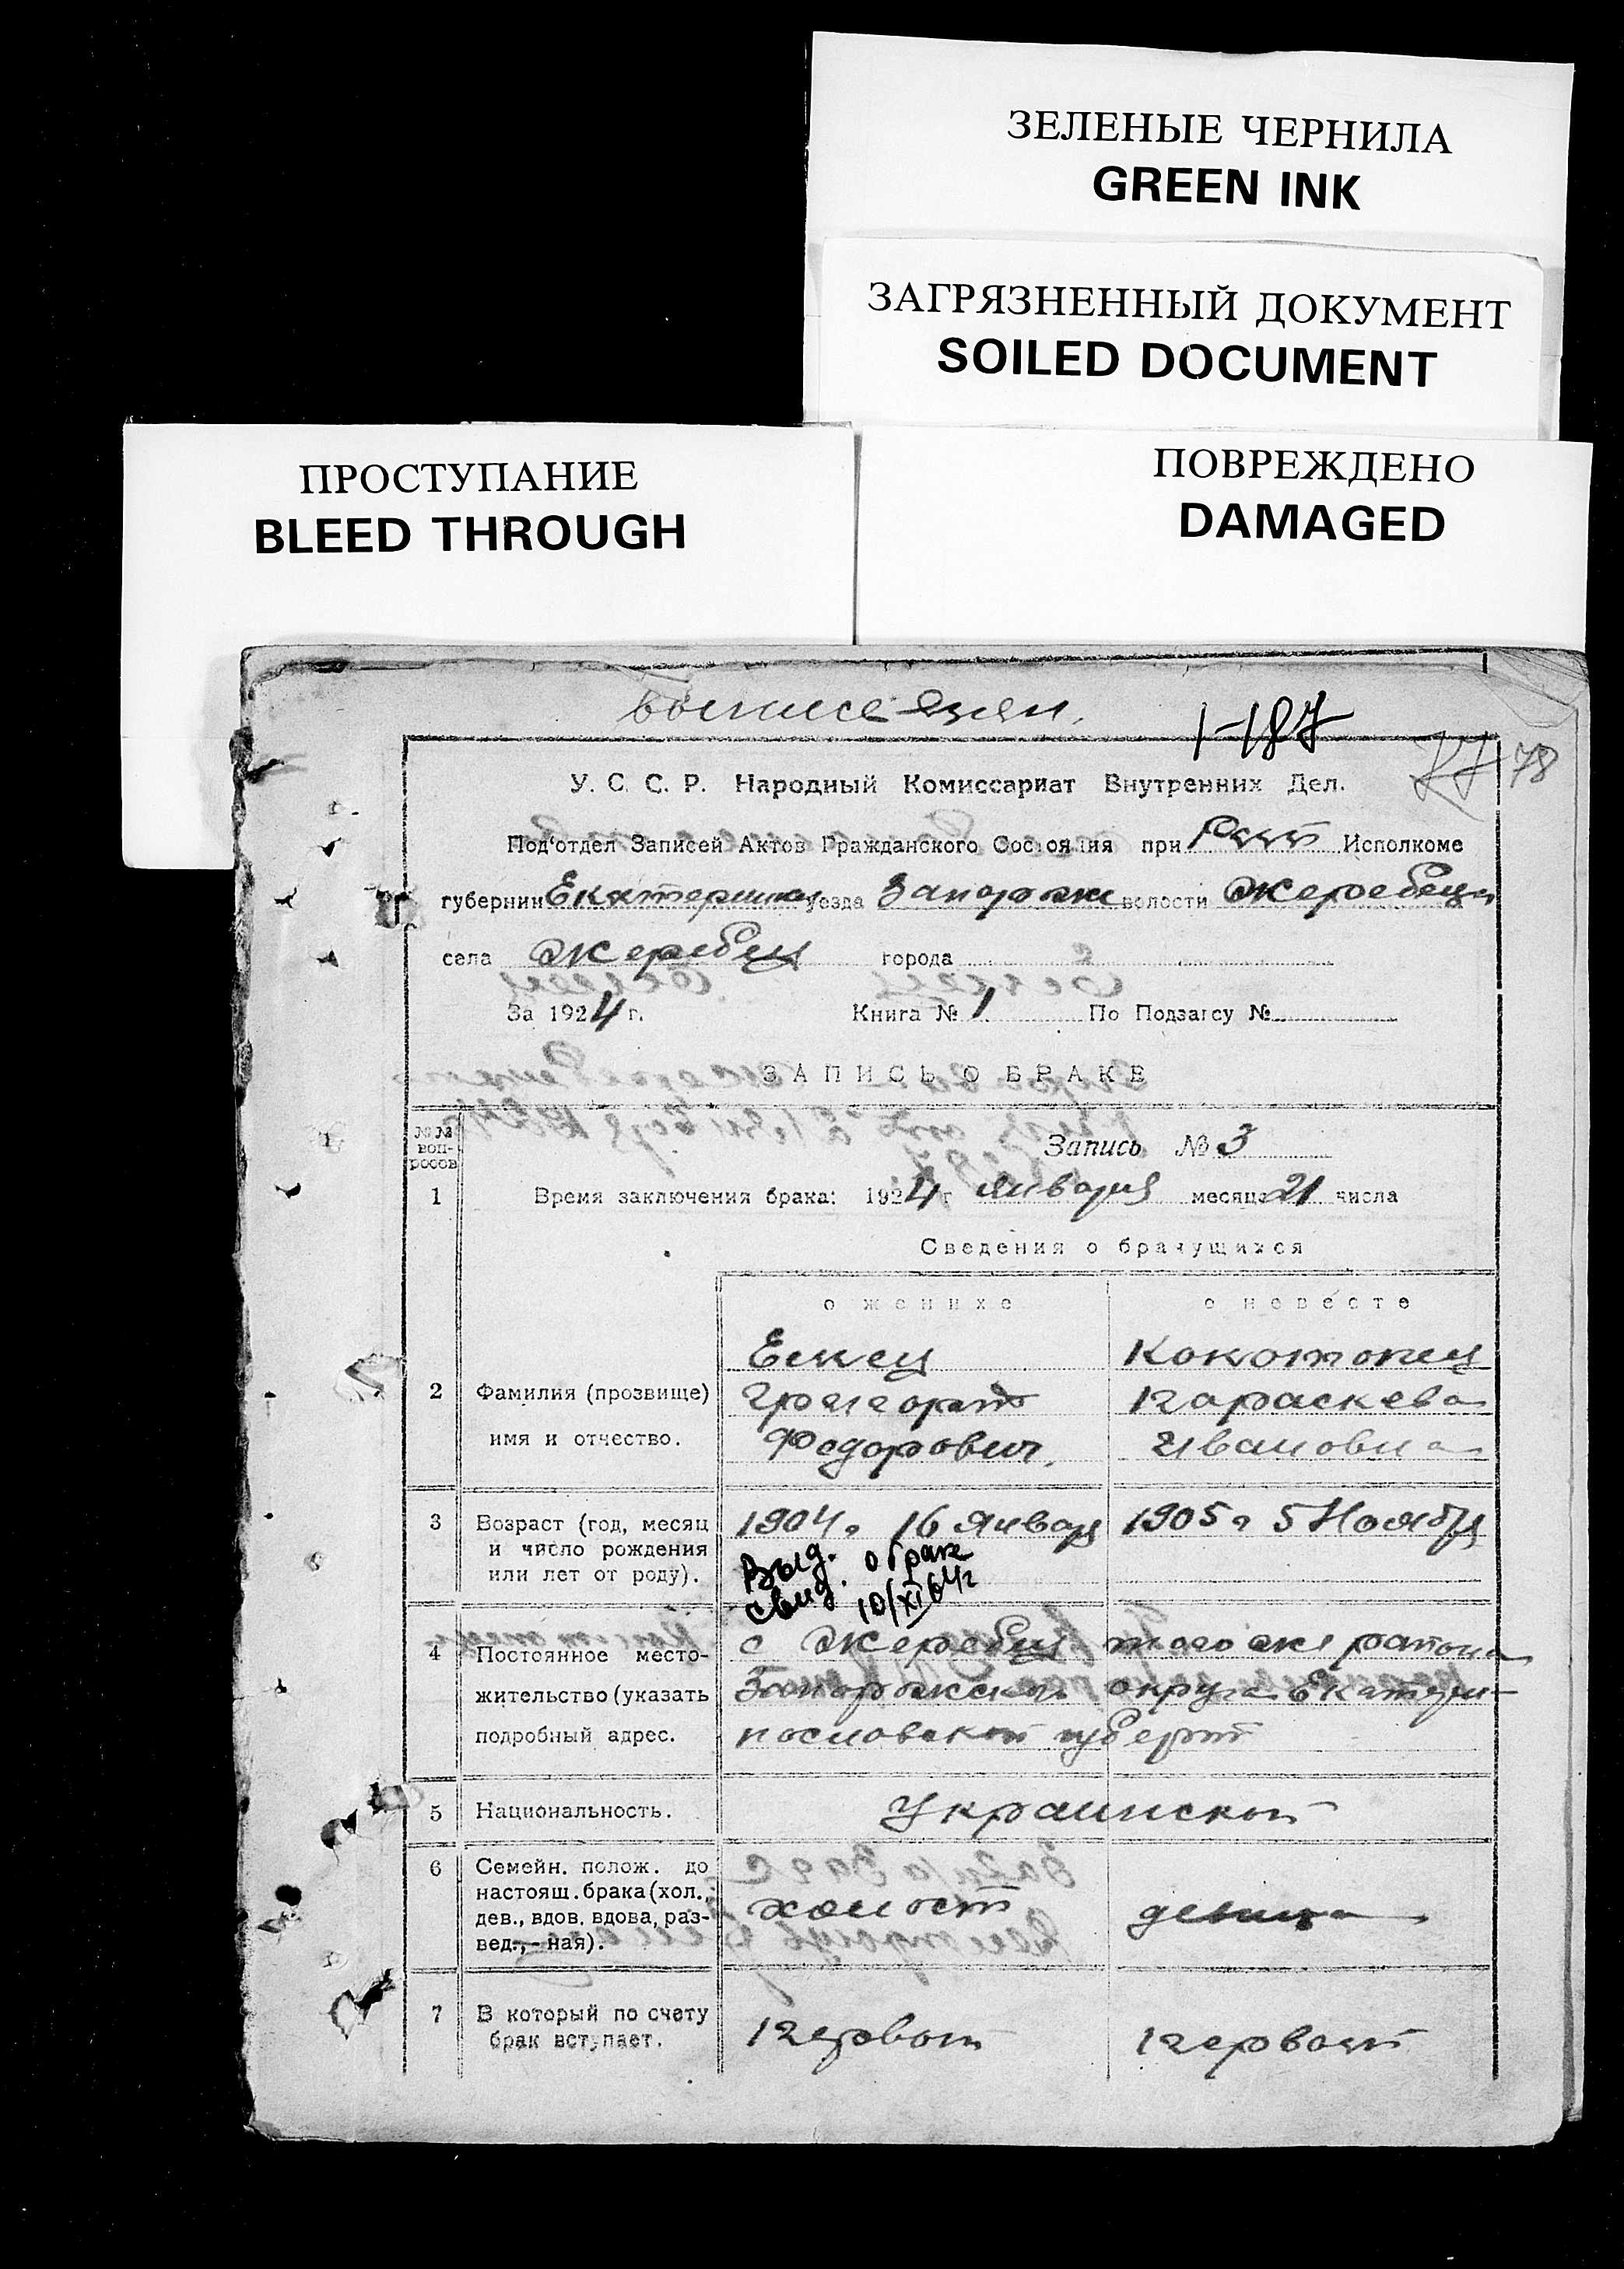 ЗЕЛЕНЫЕ ЧЕРНИЛА
GREEN INK
ЗАГРЯЗНЕННЫЙ ДОКУМЕНТ
SOILED DOCUMENT
ПРОСТУПАНИЕ
BLEED THROUGH
ПОВРЕЖДЕНО
DAMAGED
1-187
78
У. С. С. Р. Народный Комиссариат Внутренних Дел.
Под'отдел Записей Актов Гражданского Состояния при Исполкоме
губернии Екатерин уезда Запорож волости Жеребец
села Жеребец города
За 1924 г. Книга № 1 По Подзагсу №
ЗАПИСЬ О БРАКЕ
№№ вопросов
Запись № 3
1 Время заключения брака: 1924 г января месяца 21 числа
Сведения о брачущихся
о женихе о невесте
Кокотопец
2 Фамилия (прозвище) Григорий Параскева
имя и отчество. Федорович. Ивановна
3 Возраст (год, месяц 1904 г 16 Января 1905 г 5 Ноября
и число рождения
или лет от роду).
Выд. о браке
свид. 10/XI 64 г
4 Постоянное место- с Жеребец того же района
жительство (указать Запорожской округа Екатери-
подробный адрес. нославской губерн
5 Национальность. Украинской
6 Семейн. полож. до
настоящ. брака (хол., холост девица
дев., вдов. вдова, раз-
вед., - ная).
7 В который по счету первый первый
брак вступает.